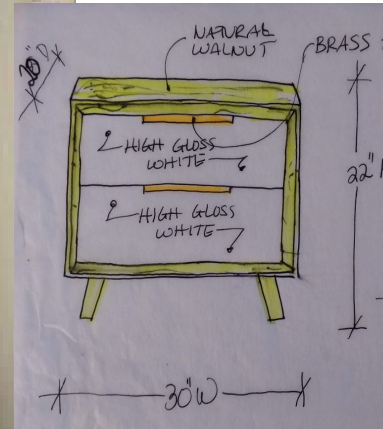 NATURAL
WALNUT
BRASS
HIGH GLOSS
WHITE
22"
HIGH GLOSS
WHITE
30"W